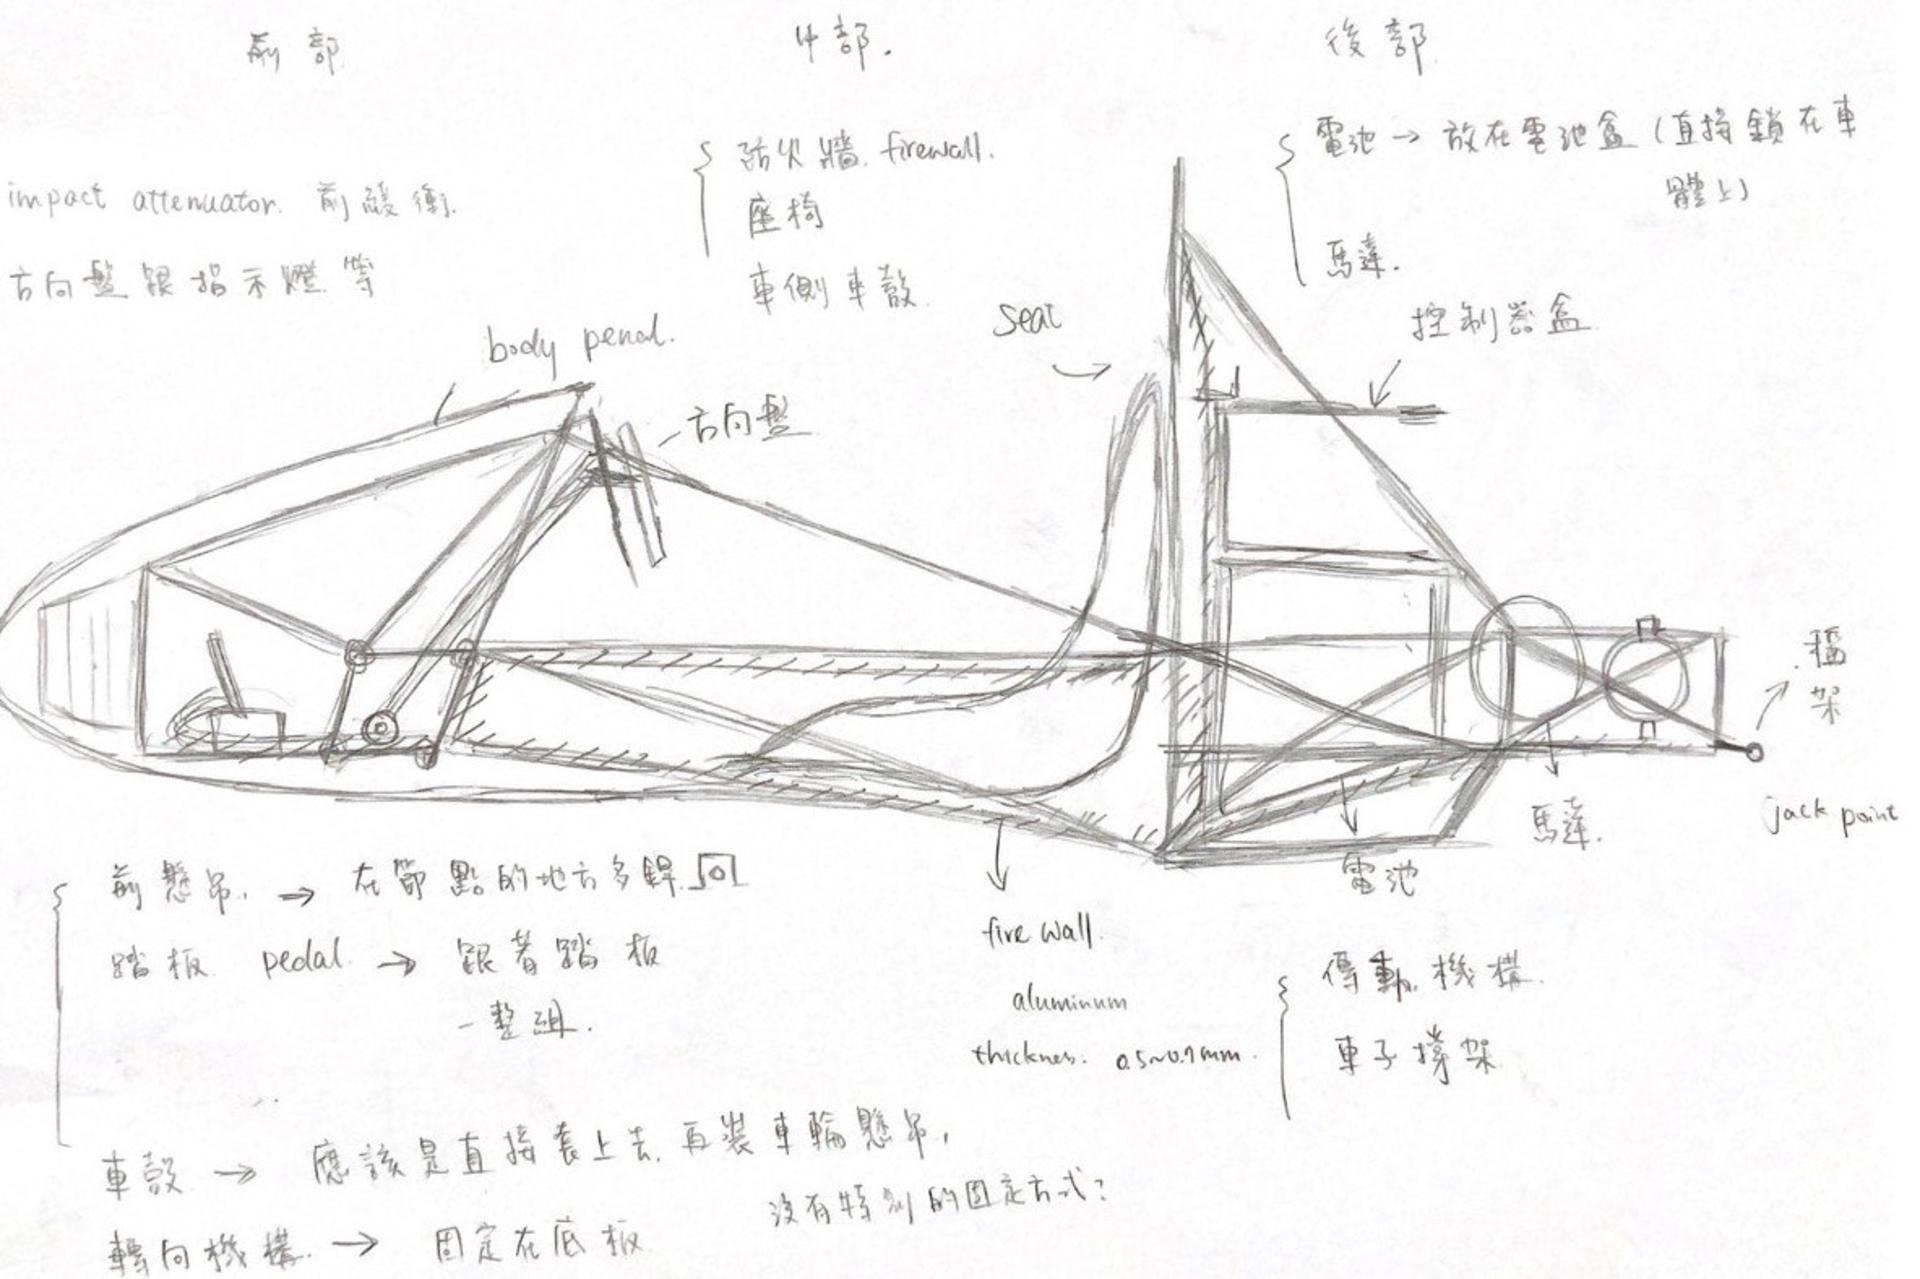 前部
中部.
後部
impact attenuator. 前緩衝.
方向盤跟指示燈等
防火牆. firewall.
座椅
車側車殼.
電池 → 放在電池盒 (直接鎖在車
體上)
馬達.
控制器盒
seat
body penal.
方向盤
jack point
馬達.
電池
fire wall.
aluminum
thickness. 0.5~0.7mm.
前懸吊. → 在節點的地方多銲
踏板 pedal. → 跟著踏板
一整組.
傳動機構.
車子撐架
車殼 → 應該是直接套上去. 再裝車輪懸吊,
沒有特別的固定方式?
轉向機構. → 固定在底板